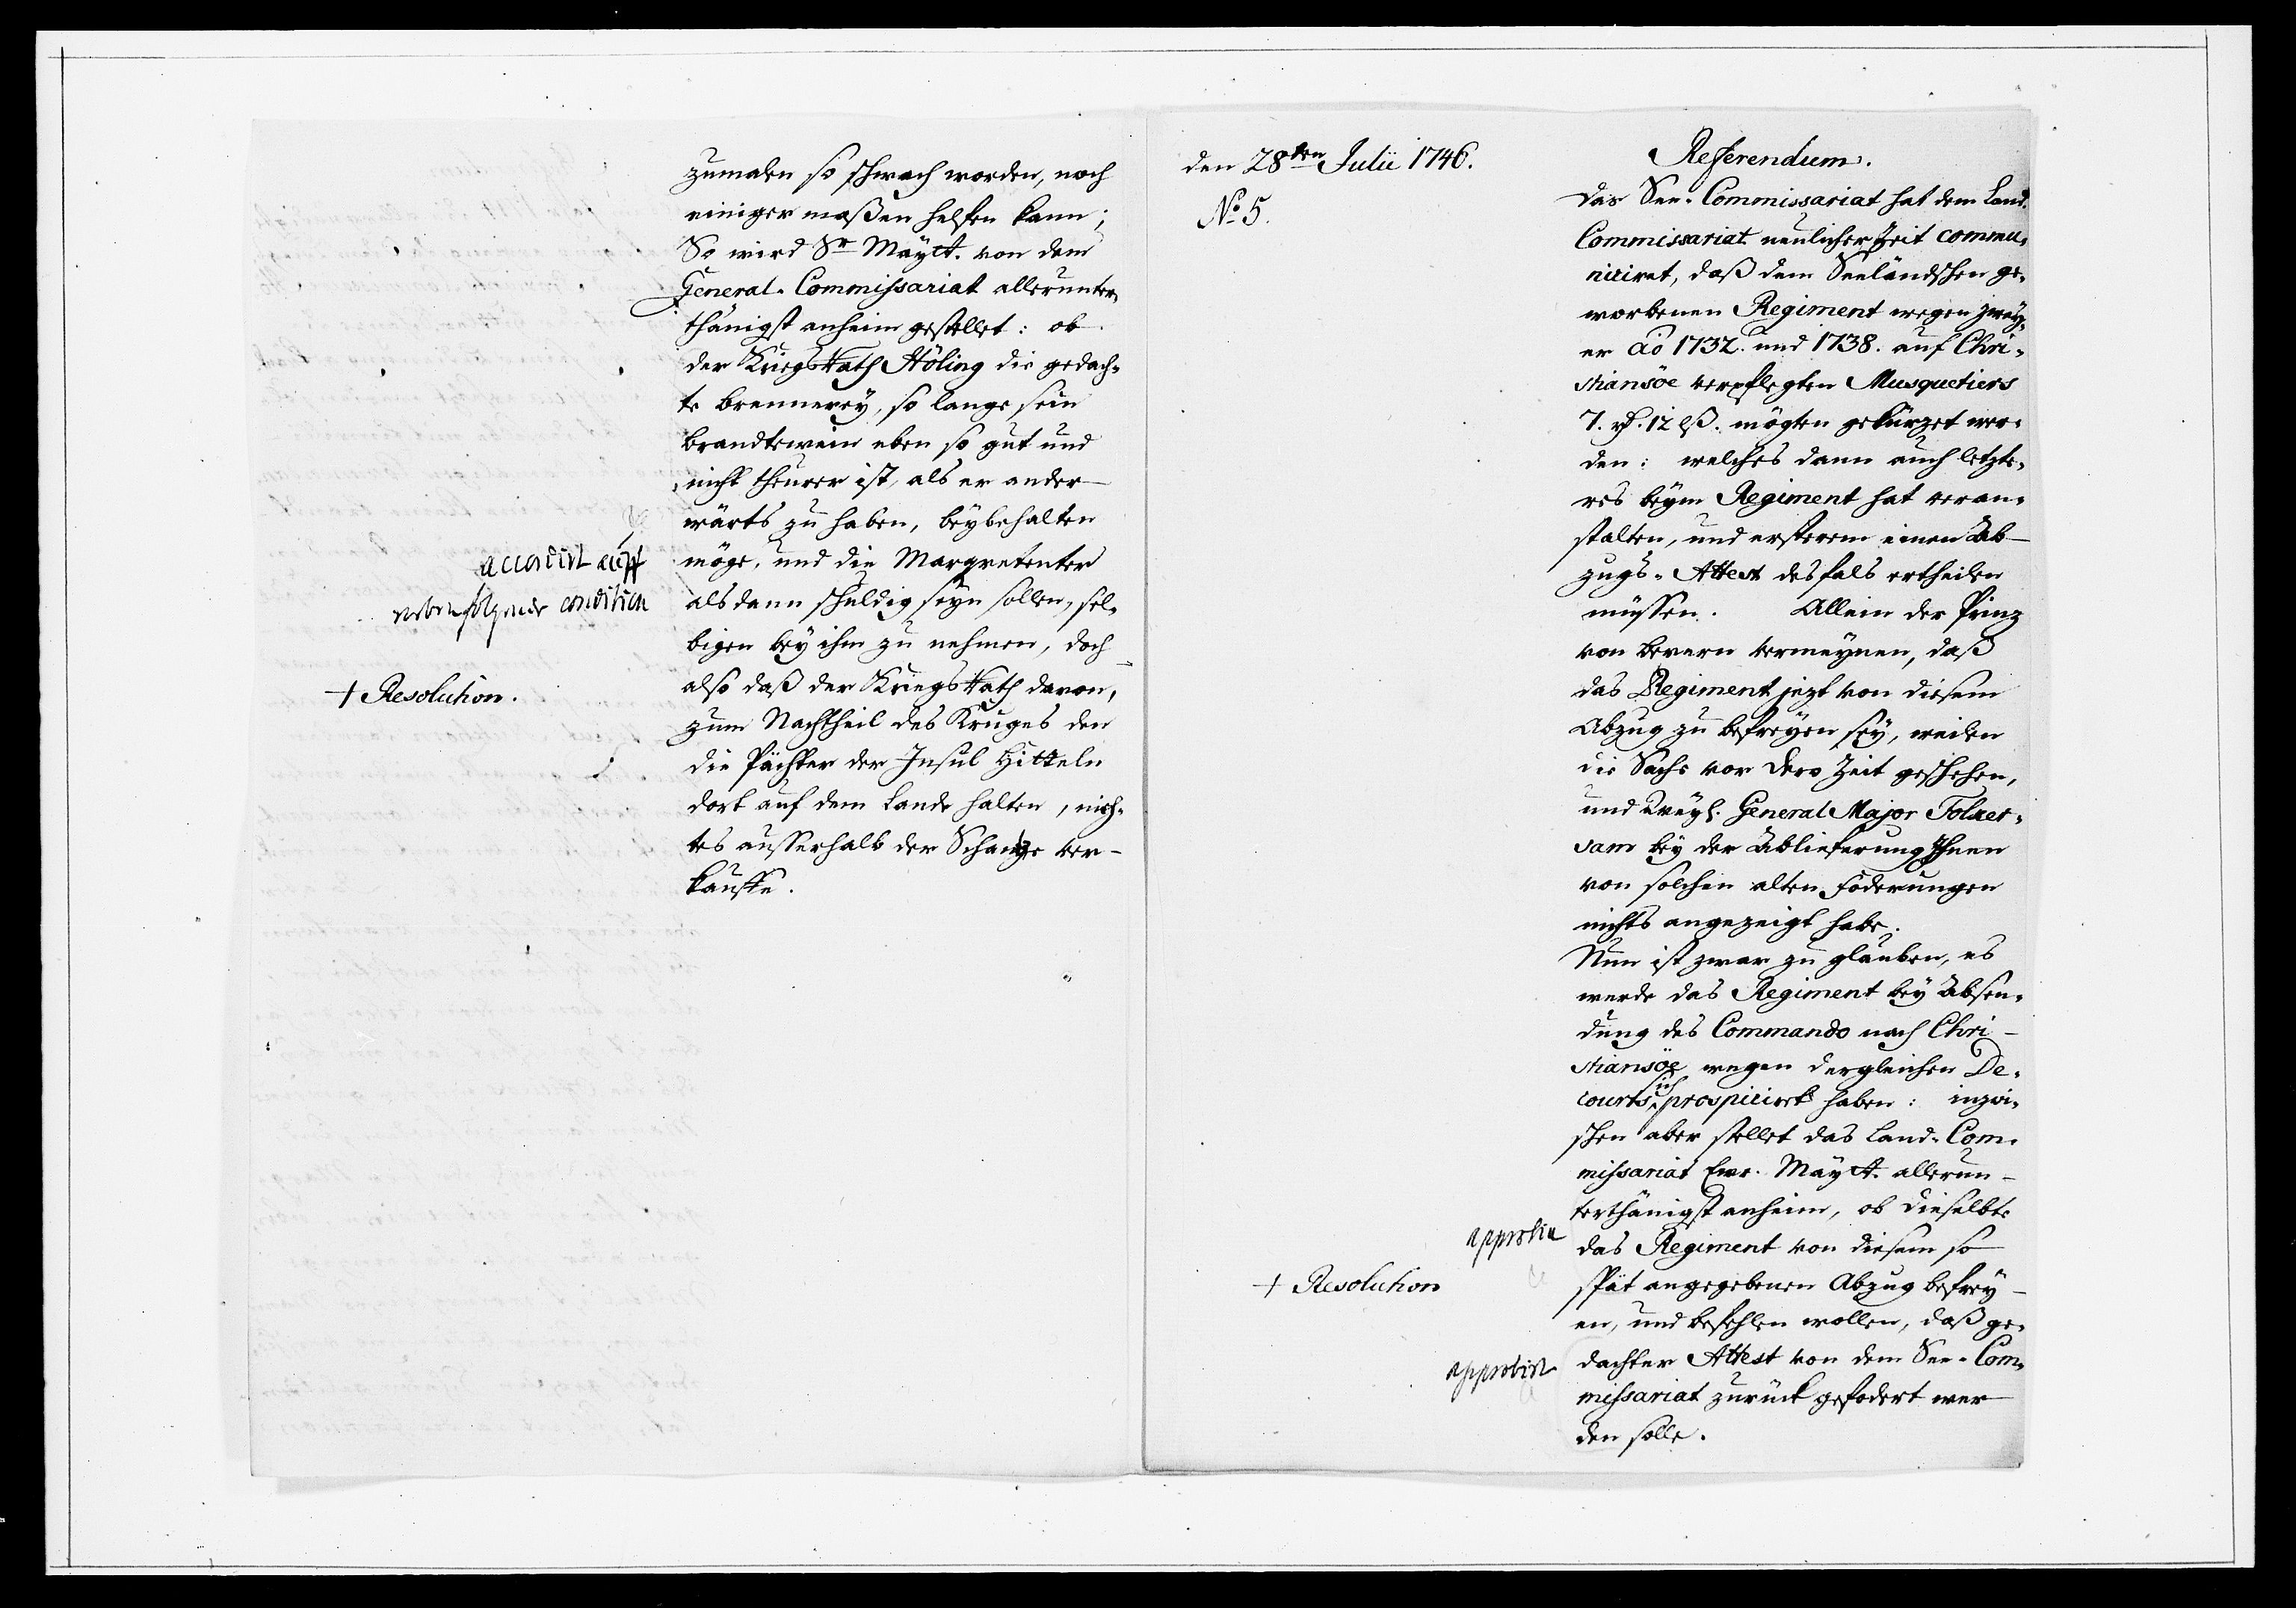 zumalen so schwach worden, noch
einiger maßen helfen kann;
So wird Sr Maytt. von dem
General-Commissariat allerunter-
thänigst anheim gestellet: ob
der KriegsRath Höling die gedach-
te brennerey, so lange sein
brandtewein eben so gut und
nicht theurer ist, als er ander
wärts zu haben, beybehalten
möge, und die Margretenter
alsdann schuldig seyn sollen, sel-
bigen bey ihm zu nehmen, doch
also daß der KriegsRath davon,
zum Nachtheil des Kruges den
die Pächter der Insul Hitteln
dort auf dem Lande halten, nich-
tes ausserhalb der Schantze ver-
kauffe.
accordirt auff
nebenfolgende condition
+ Resolution.
den 28ten Julii 1746.
No 5.
Referendum.
Das See-Commissariat hat dem Land-
Commissariat neulicher Zeit commu-
niciret, daß dem Seeländschen ge-
worbenen Regiment wegen zwey-
er ao 1732. und 1738. auf Chri-
stiansöe verpflegten Musquetiers
7. rd. 12 lß. mögten gekürzet wer-
den: welches dann auch letzte-
res beym Regiment hat veran-
stalten, und ersterem einen Ab-
zugs-Attest desfals ertheilen
müssen. Allein der Prinz
von Bevern vermeynen, daß
das Regiment jezt von diesem
Abzug zu befreyen sey, weilen
die Sache vor dero Zeit geschehen,
und weyl. General Major Folker-
sam bey der Ablieferung Ihnen
von solchen alten Foderungen
nichts angezeigt habe.
Nun ist zwar zu glauben, es
werde das Regiment bey Absen-
dung des Commando nach Chri-
stiansöe wegen dergleichen De-
courts sich prospiciret haben: inzwi-
schen aber stellet das Land-Com-
missariat Ewr. Maytt. allerun-
terthänigst anheim, ob dieselbte
das Regiment von diesem so
spät angegebenen Abzug befrey-
en, und befehlen wollen, daß ge-
dachter Attest von dem See-Com-
missariat zurück gefodert wer
den solle.
approbirt
+ Resolution
approbirt